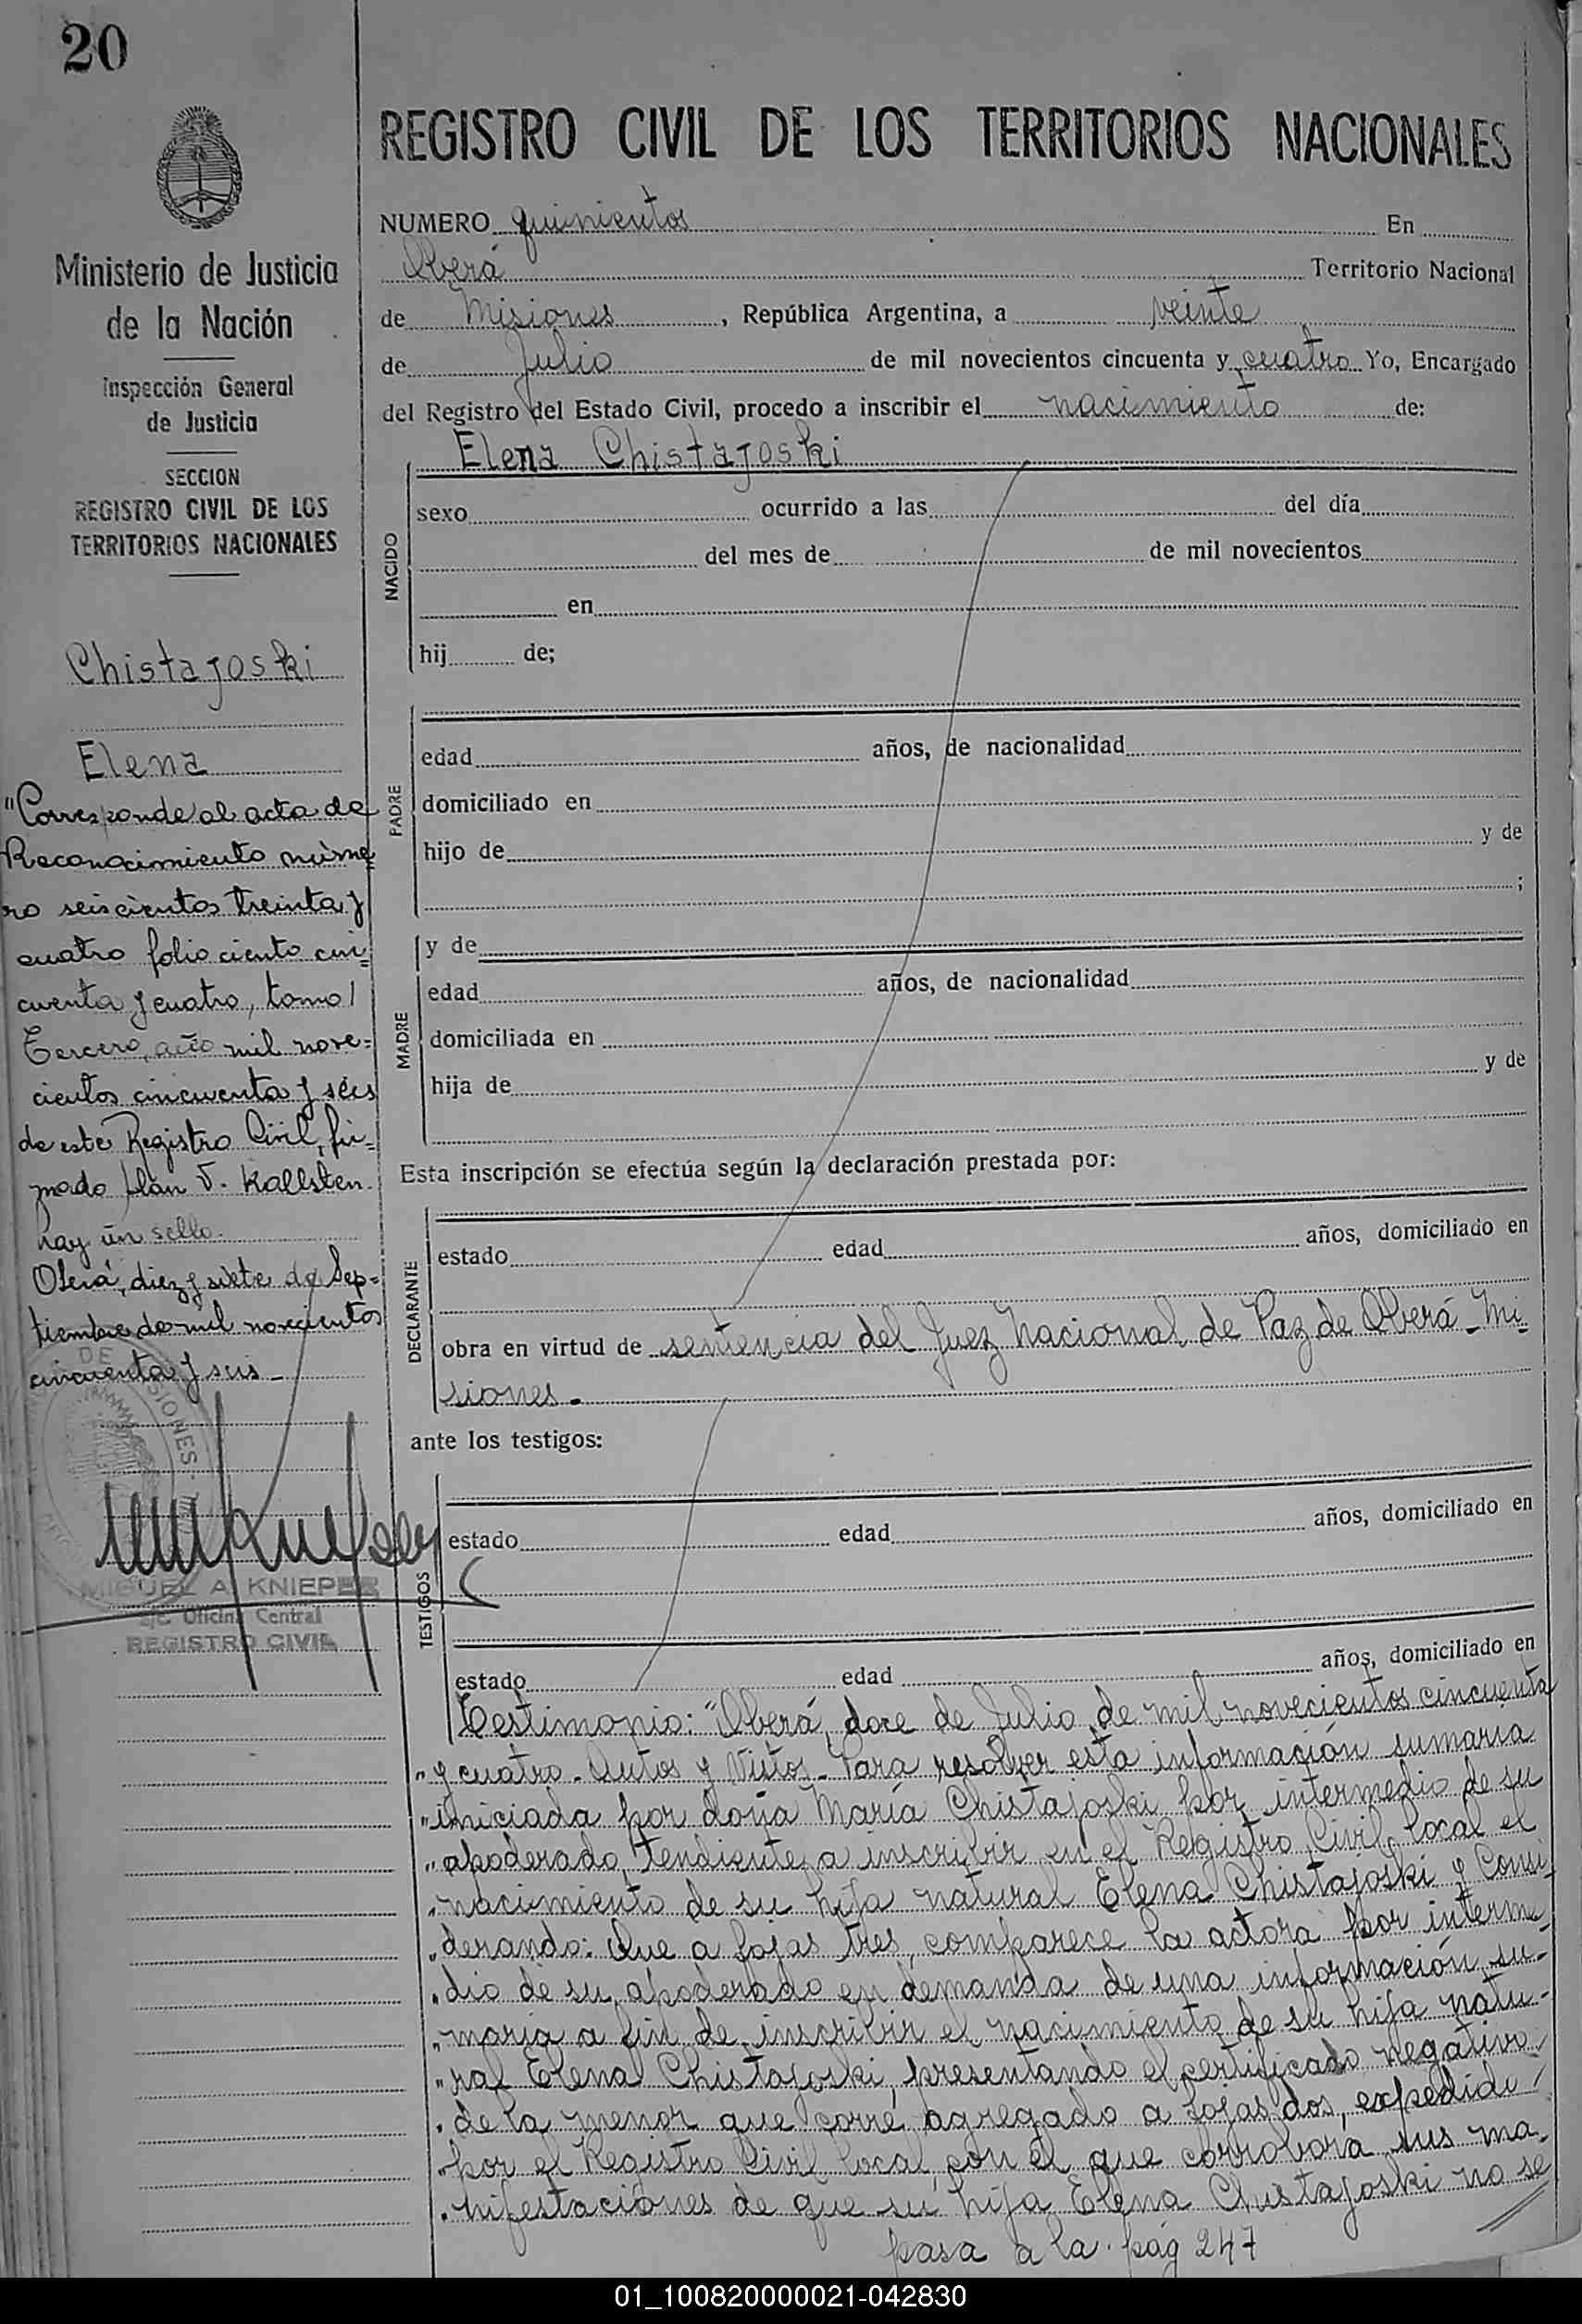 20
Ministerio de Justicia
de la Nación
Inspección General
de Justicia
SECCION
REGISTRO CIVIL DE LOS
TERRITORIOS NACIONALES
Chistajoski
Elena
"Corresponde al acta de
Reconocimiento núme=
ro seiscientos treinta y
cuatro folio ciento cin=
cuenta y cuatro, tomo
Tercero, año mil nove=
cientos cincuenta y seis
de este Registro Civil, fir=
mado V. Kallsten.
hay un sello.
Oberá, diez y siete de Sep=
tiembre de mil novecientos
cincuenta y seis -
MIGUEL A. KNIEPER
Oficina Central
REGISTRO CIVIL
REGISTRO CIVIL DE LOS TERRITORIOS NACIONALES
NUMERO quinientos En
Oberá Territorio Nacional
de Misiones, República Argentina, a veinte
de Julio de mil novecientos cincuenta y cuatro Yo, Encargado
del Registro del Estado Civil, procedo a inscribir el nacimiento de:
Elena Chistajoski
NACIDO
sexo ocurrido a las del día
del mes de de mil novecientos
en
hij de;
PADRE
edad años, de nacionalidad
domiciliado en
hijo de y de
;
MADRE
y de
edad años, de nacionalidad
domiciliada en
hija de y de
Esta inscripción se efectúa según la declaración prestada por:
DECLARANTE
estado edad años, domiciliado en
obra en virtud de sentencia del Juez Nacional de Paz de Oberá - Mi=
siones.
ante los testigos:
TESTIGOS
estado edad años, domiciliado en
estado edad años, domiciliado en
Testimonio: "Oberá, doce de Julio de mil novecientos cincuenta
"y cuatro. Autos y Vistos. Para resolver esta información sumaria
"iniciada por doña María Chistajoski por intermedio de su
"apoderado, tendiente a inscribir en el Registro Civil local el
"nacimiento de su hija natural Elena Chistajoski y Consi-
"derando: Que a fojas tres, comparece la actora por interme-
"dio de su apoderado en demanda de una información su-
"maria a fin de inscribir el nacimiento de su hija natu-
"ral Elena Chistajoski, presentando el certificado negativo
"de la menor que corre agregado a fojas dos, expedido
"por el Registro Civil local, con el que corrobora sus ma-
"nifestaciones de que su hija Elena Chistajoski no se
pasa a la pág 247
01_100820000021-042830